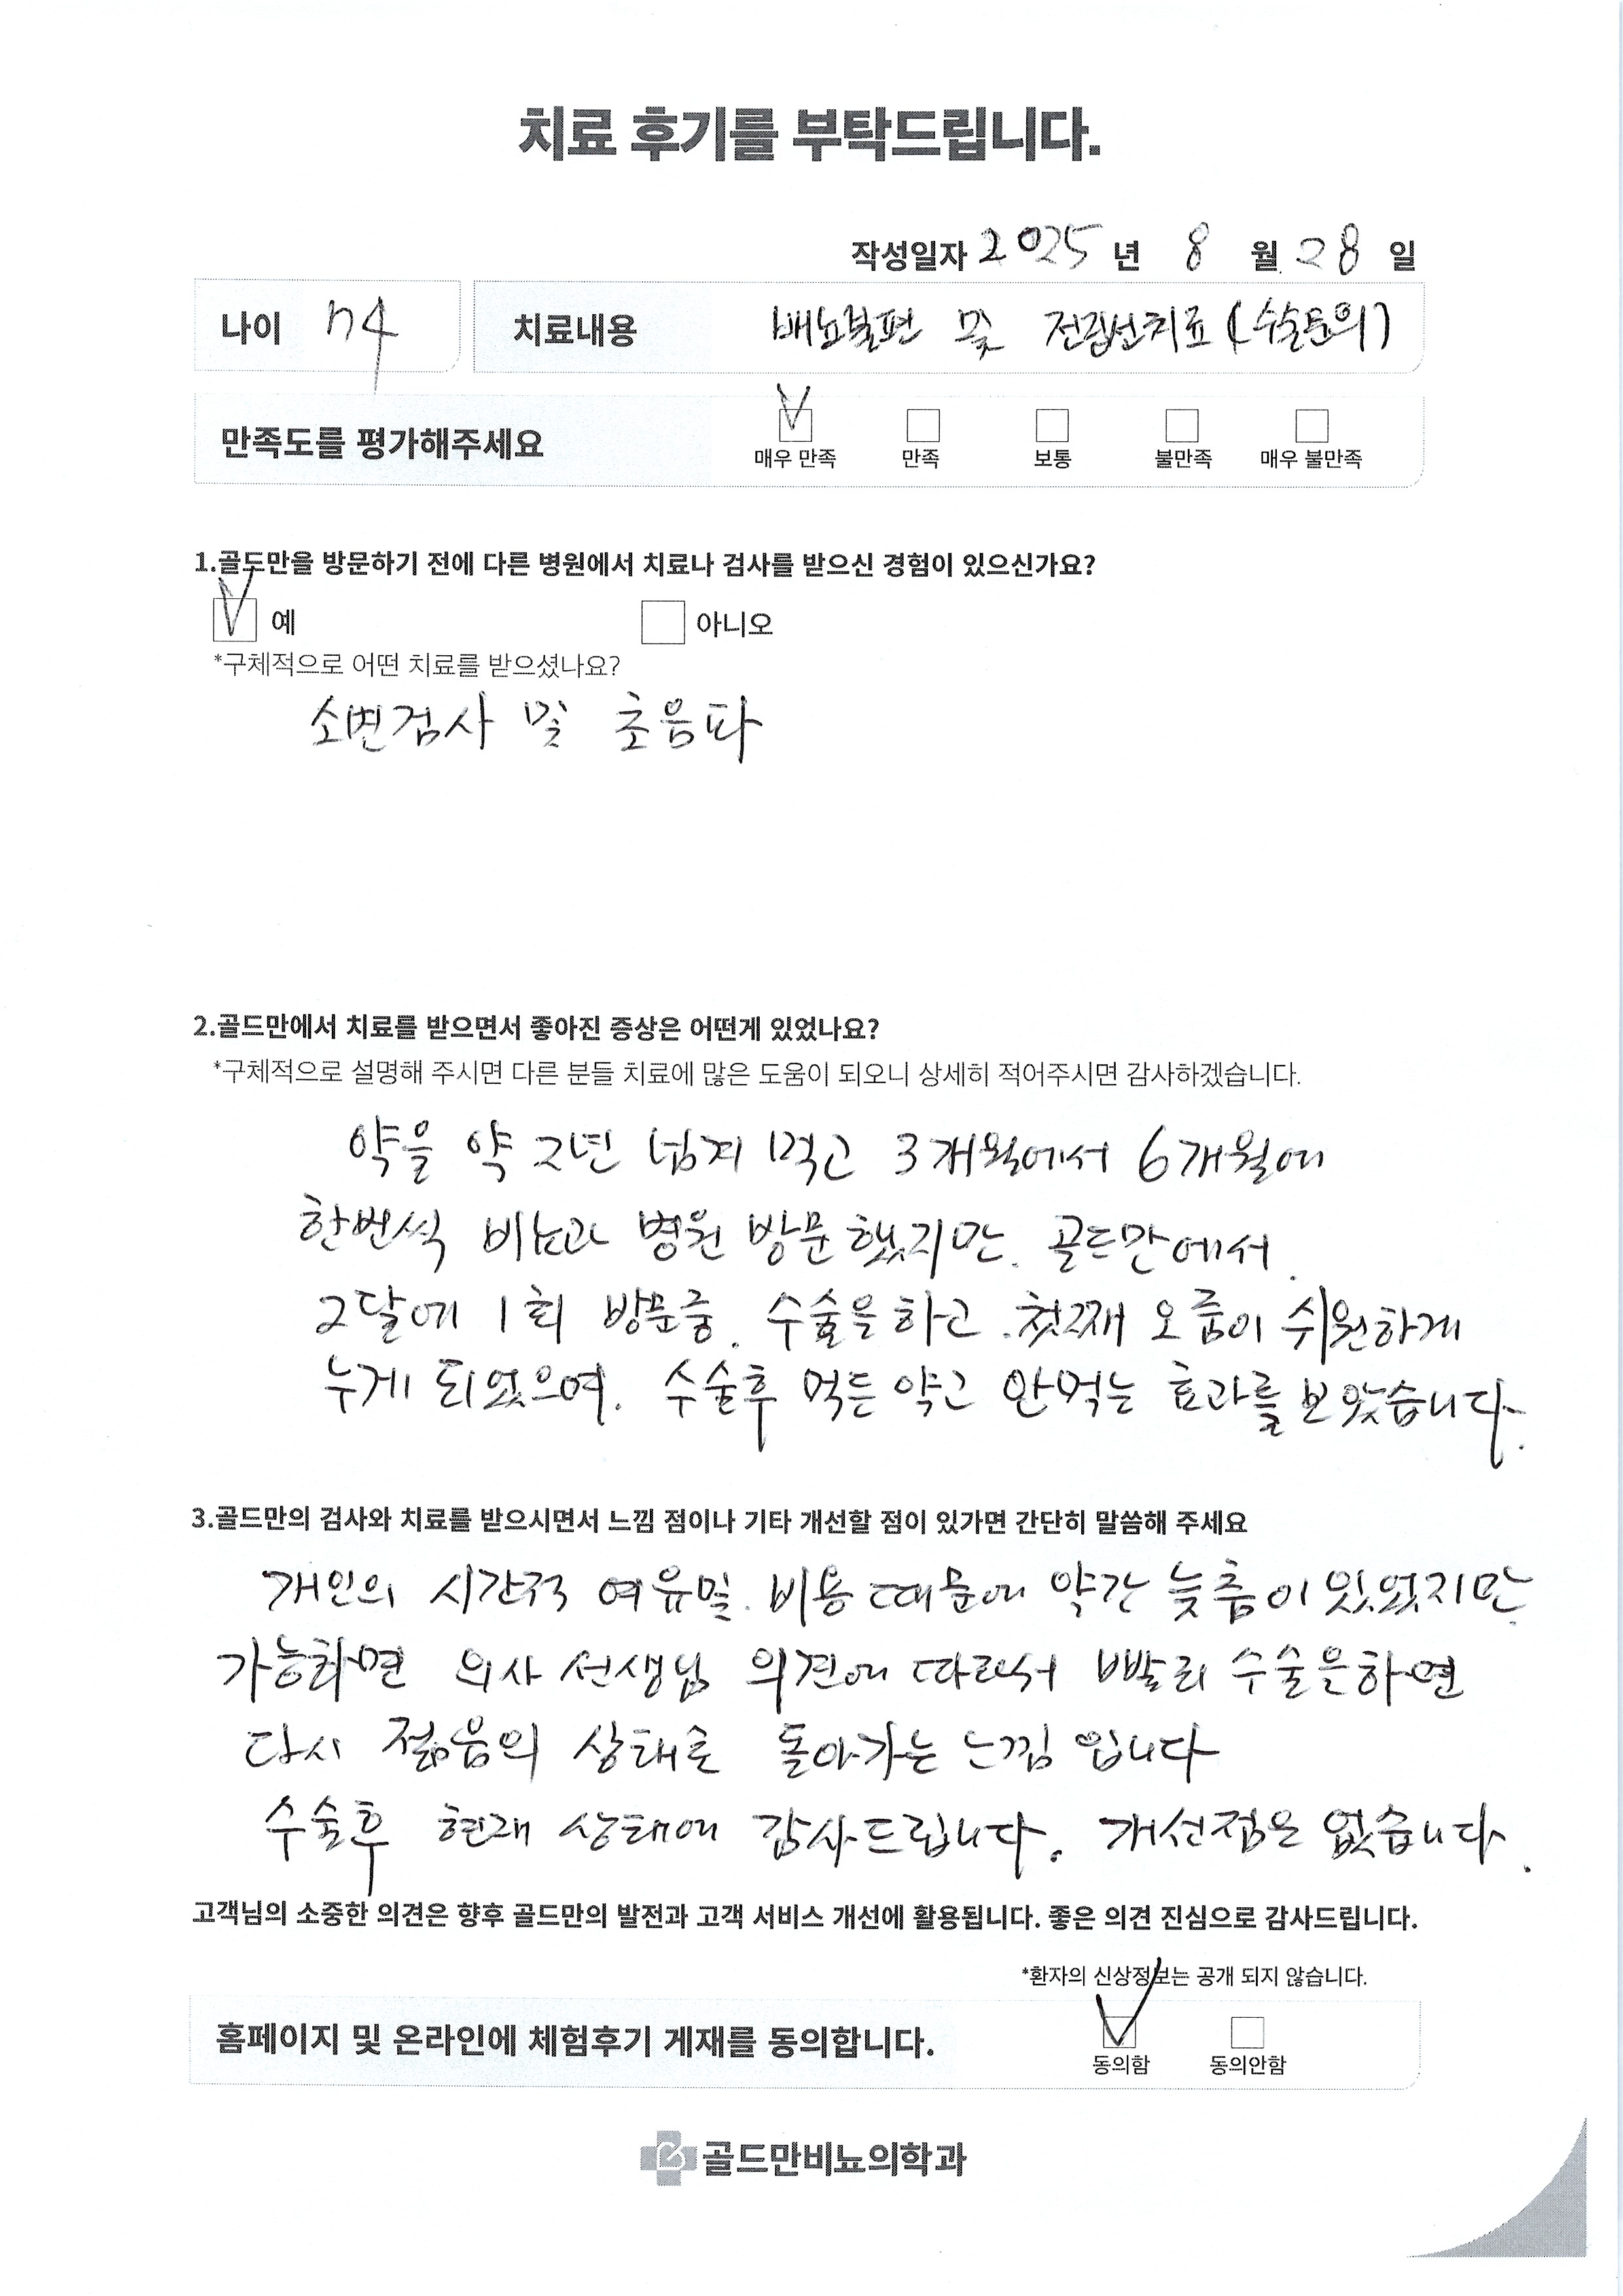 치료 후기를 부탁드립니다.
작성일자 2025 년 8 월 28 일
나이 74 치료내용 배뇨불편 및 전립선치료 (수술동의)
만족도를 평가해주세요
매우 만족 만족 보통 불만족 매우 불만족
1.골드만을 방문하기 전에 다른 병원에서 치료나 검사를 받으신 경험이 있으신가요?
예 아니오
*구체적으로 어떤 치료를 받으셨나요?
소변검사 및 초음파
2.골드만에서 치료를 받으면서 좋아진 증상은 어떤게 있었나요?
*구체적으로 설명해 주시면 다른 분들 치료에 많은 도움이 되오니 상세히 적어주시면 감사하겠습니다.
약을 약 2년 넘게 먹고 3개월에서 6개월에
한번씩 비뇨과 병원 방문했지만. 골드만에서.
2달에 1회 방문중. 수술을하고. 첫째 오줌이 쉬원하게
누게 되었으며. 수술후 먹든 약고 안먹는 효과를 보았습니다.
3.골드만의 검사와 치료를 받으시면서 느낌 점이나 기타 개선할 점이 있가면 간단히 말씀해 주세요
개인의 시간적 여유및. 비용때문에 약간 늦춤이 있었지만
가능하면 의사 선생님 의견에 따라서 빨리 수술은하면
다시 젊음의 상태로 돌아가는 느낌 입니다
수술후 현재 상태에 감사드립니다. 개선점은 없습니다.
고객님의 소중한 의견은 향후 골드만의 발전과 고객 서비스 개선에 활용됩니다. 좋은 의견 진심으로 감사드립니다.
*환자의 신상정보는 공개 되지 않습니다.
홈페이지 및 온라인에 체험후기 게재를 동의합니다.
동의함 동의안함
골드만비뇨의학과